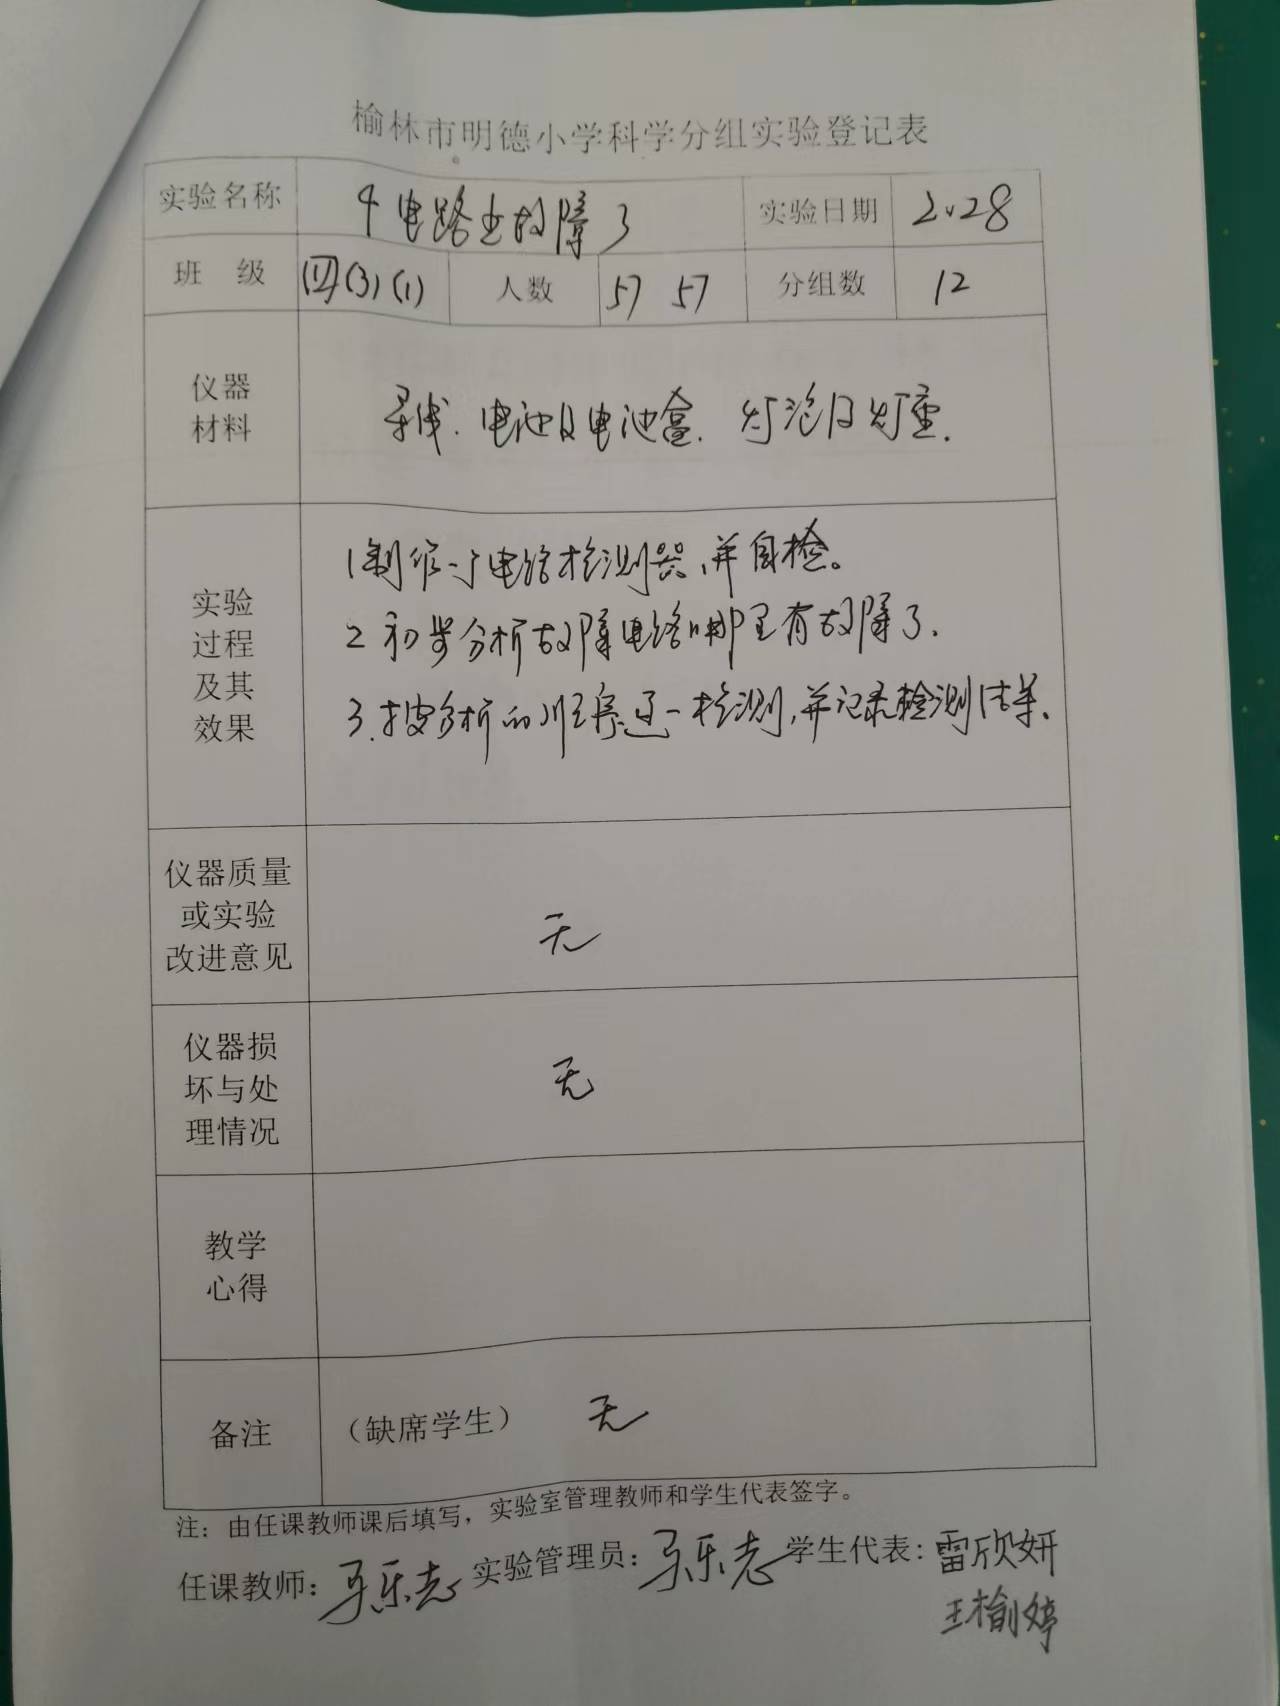 榆林市明德小学科学分组实验登记表
实验名称 4电路出故障了 实验日期 2.28
班 级 (四)(3)(1) 人数 57 57 分组数 12
仪器
材料
导线. 电池及电池盒. 灯泡及灯座.
实验
过程
及其
效果
1制作一个电路检测器,并自检。
2初步分析故障电路哪里有故障了.
3.按分析的顺序逐一检测,并记录检测结果.
仪器质量
或实验
改进意见
无
仪器损
坏与处
理情况
无
教学
心得
备注 (缺席学生) 无
注：由任课教师课后填写，实验室管理教师和学生代表签字。
任课教师：马乐志 实验管理员：马乐志 学生代表：雷欣妍
王榆婷